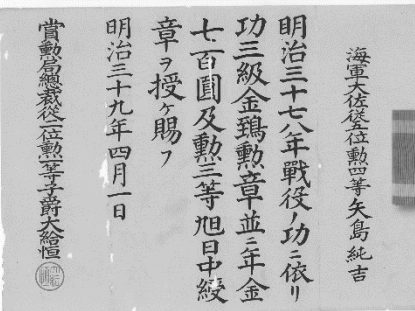 海軍大佐從五位勲四等矢島純吉
明治三十七八年戰役ノ功ニ依リ
功三級金鵄勲章並ニ年金
七百圓及勲三等旭日中綬
章ヲ授ケ賜フ
明治三十九年四月一日
賞勲局總裁從二位勲一等子爵大給恒